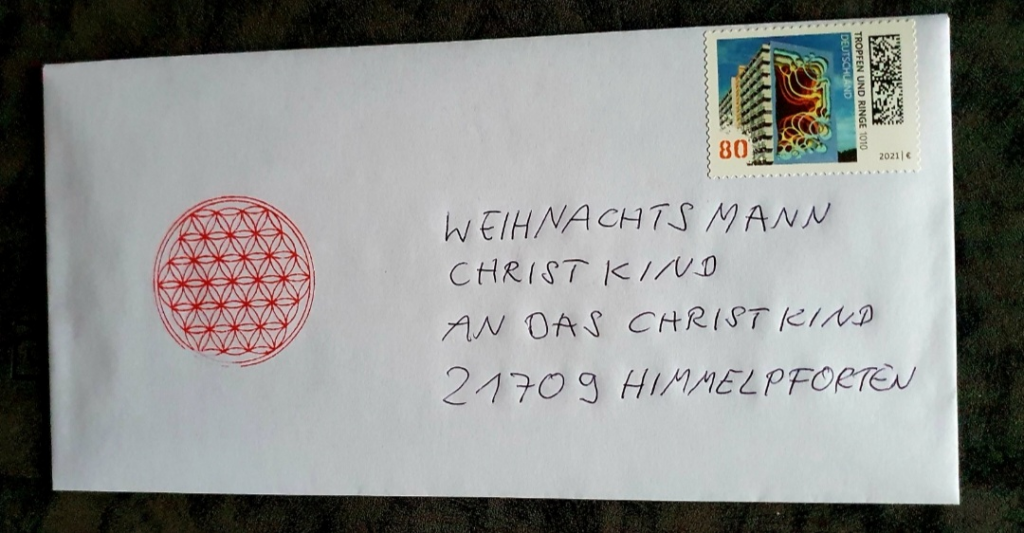 TROPFEN UND RINGE 1010
DEUTSCHLAND
80
2021 | €
WEIHNACHTSMANN
CHRISTKIND
AN DAS CHRISTKIND
21709 HIMMELPFORTEN